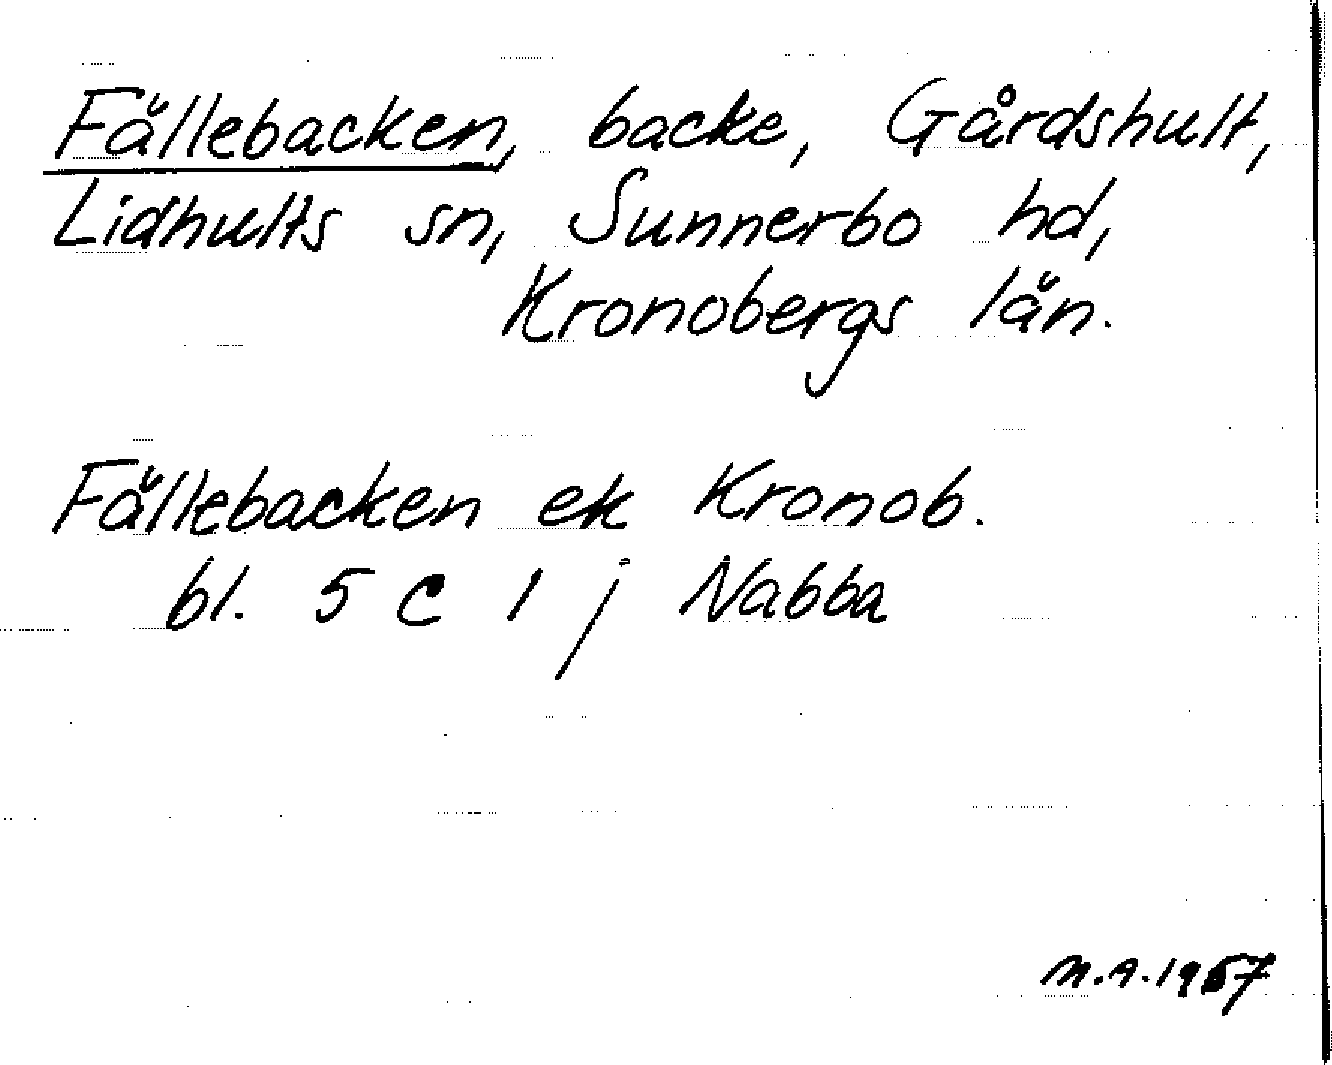 Fällebacken, backe, Gårdshult,
Lidhults sn, Sunnerbo hd,
Kronobergs län.
Fällebacken ek Kronob.
bl. 5 C 1 j Nabba
M.A. 1967